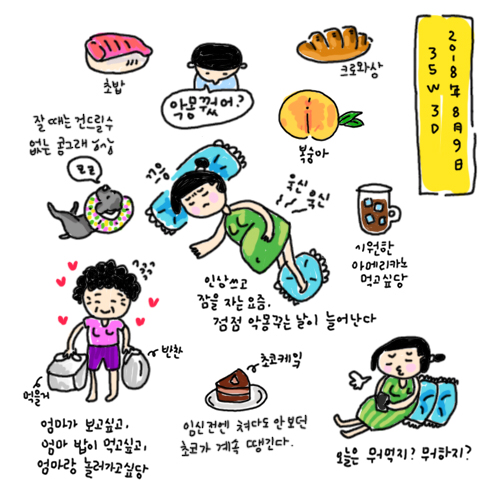 초밥
악몽꿨어?
크로와상
2018年 8月 9日
35W 3D
잘 때는 건드릴수
없는 콩그래
코로
끄응
복숭아
욱신 욱신
시원한
아메리카노
먹고싶당
인상쓰고
잠을 자는 요즘,
점점 악몽꾸는 날이 늘어난다
반찬
먹을거
엄마가 보고싶고,
엄마 밥이 먹고싶고,
엄마랑 놀러가고싶당
초코케익
임신전엔 쳐다도 안보던
초코가 계속 땡긴다.
오늘은 뭐먹지? 뭐하지?